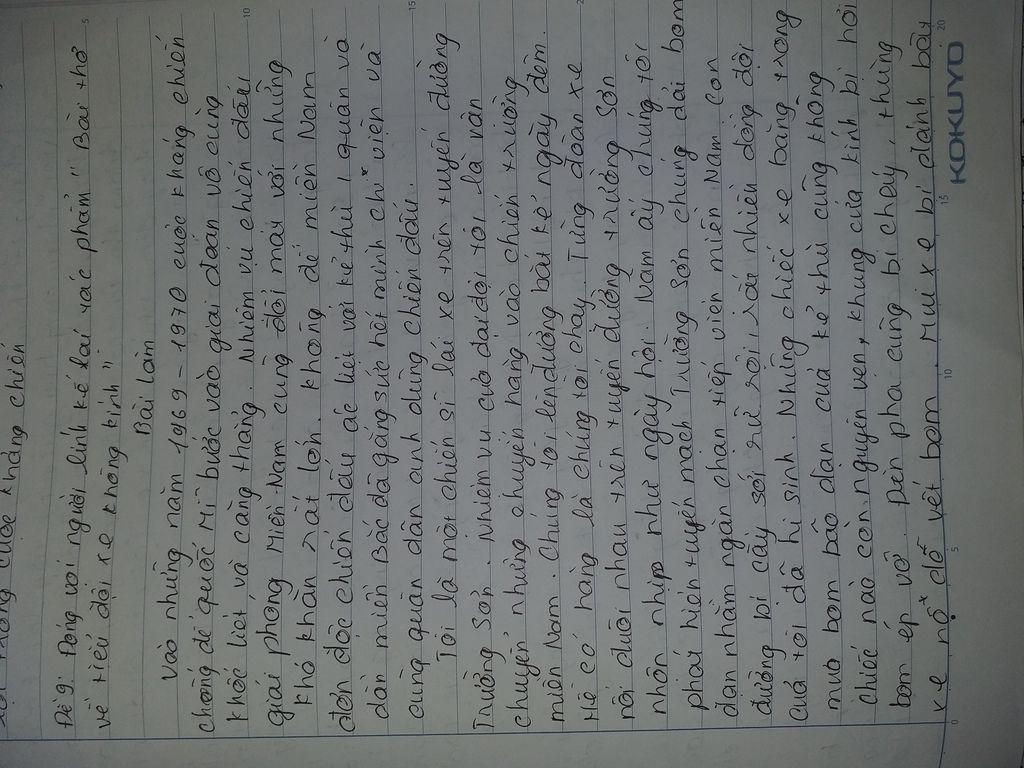 cuộc kháng chiến
Đề 9: Đóng vai người lính kể lại tác phẩm " Bài thơ
về tiểu đội xe không kính"
Bài làm
Vào những năm 1969 - 1970 cuộc kháng chiến
chống đế quốc Mĩ bước vào giai đoạn vô cùng
khốc liệt và căng thẳng. Nhiệm vụ chiến đấu
giải phóng Miền Nam cùng đối mặt với những
khó khăn rất lớn, không để miền Nam
đơn độc chiến đấu ác liệt với kẻ thù, quân và
dân miền Bắc đã gắng sức hết mình chi viện và
cùng quân dân anh dũng chiến đấu.
Tôi là một chiến sĩ lái xe trên tuyến đường
Trường Sơn. Nhiệm vụ của đại đội tôi là vận
chuyển những chuyến hàng vào chiến trường
miền Nam. Chúng tôi lên đường bất kể ngày đêm.
Hễ có hàng là chúng tôi chạy. Từng đoàn xe
nối đuôi nhau trên tuyến đường trường sơn
nhộn nhịp như ngày hội. Năm ấy chúng tôi
phát hiện tuyến mạch Trường Sơn chúng dải bom
đạn nhằm ngăn chặn tiếp viện miền Nam. Con
đường bị cày xới dữ dội rất nhiên đồng đội
của tôi đã hi sinh. Những chiếc xe băng trong
mưa bom bão đạn của kẻ thù cũng không
chiếc nào còn nguyên vẹn, khung cửa kính bị hơi
bom ép vỡ. Đèn pha cũng bị cháy, thùng
xe nổ đỗ vết bom Mui xe bị đánh bay
KOKUYO